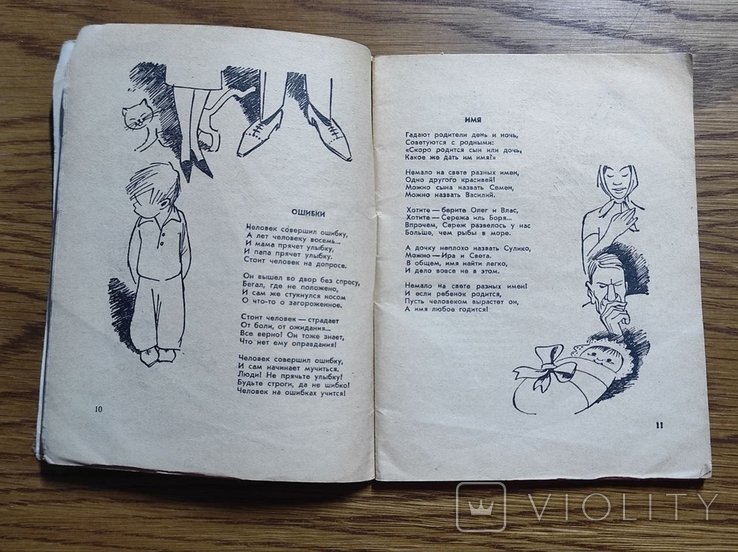 ОШИБКИ
Человек совершил ошибку,
А лет человеку восемь...
И мама прячет улыбку,
И папа прячет улыбку.
Стоит человек на допросе.
Он вышел во двор без спросу,
Бегал, где не положено,
И сам же стукнулся носом
О что-то загороженное.
Стоит человек — страдает
От боли, от ожидания...
Все верно! Он тоже знает,
Что нет ему оправдания!
Человек совершил ошибку,
И сам начинает мучиться.
Люди! Не прячьте улыбку!
Будьте строги, да не шибко!
Человек на ошибках учится!
10
ИМЯ
Гадают родители день и ночь,
Советуются с родными:
«Скоро родится сын или дочь,
Какое же дать им имя!»
Немало на свете разных имен,
Одно другого красивей!
Можно сына назвать Семен,
Можно назвать Василий.
Хотите — берите Олег и Влас,
Хотите — Сережа иль Боря...
Впрочем, Сереж развелось у нас
Больше, чем рыбы в море.
А дочку неплохо назвать Сулико,
Можно — Ира и Света.
В общем, имя найти легко,
И дело вовсе не в этом.
Немало на свете разных имен!
И если ребенок родится,
Пусть человеком вырастет он,
А имя любое годится!
11
VIOLITY